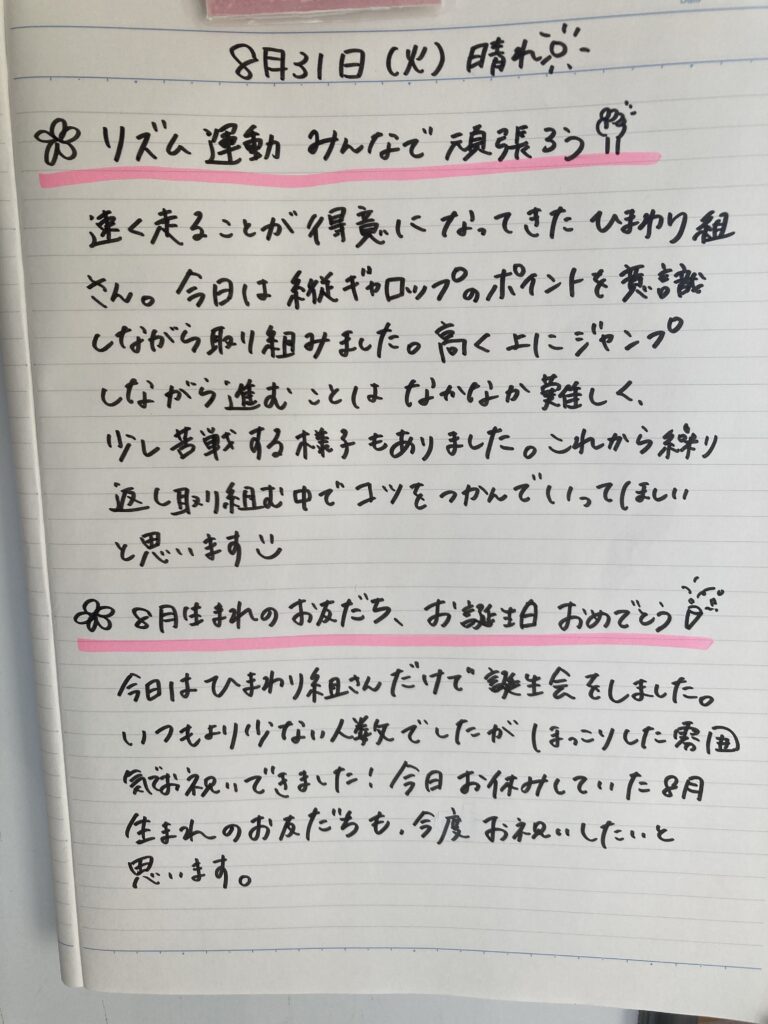 8月31日(火) 晴れ
リズム運動 みんなで頑張ろう
速く走ることが得意になってきたひまわり組
さん。今日は縦ギャロップのポイントを意識
しながら取り組みました。高く上にジャンプ
しながら進むことはなかなか難しく、
少し苦戦する様子もありました。これから繰り
返し取り組む中でコツをつかんでいってほしい
と思います
8月生まれのお友だち、お誕生日おめでとう
今日はひまわり組さんだけで誕生会をしました。
いつもより少ない人数でしたがほっこりした雰囲
気でお祝いできました!今日お休みしていた8月
生まれのお友だちも、今度お祝いしたいと
思います。